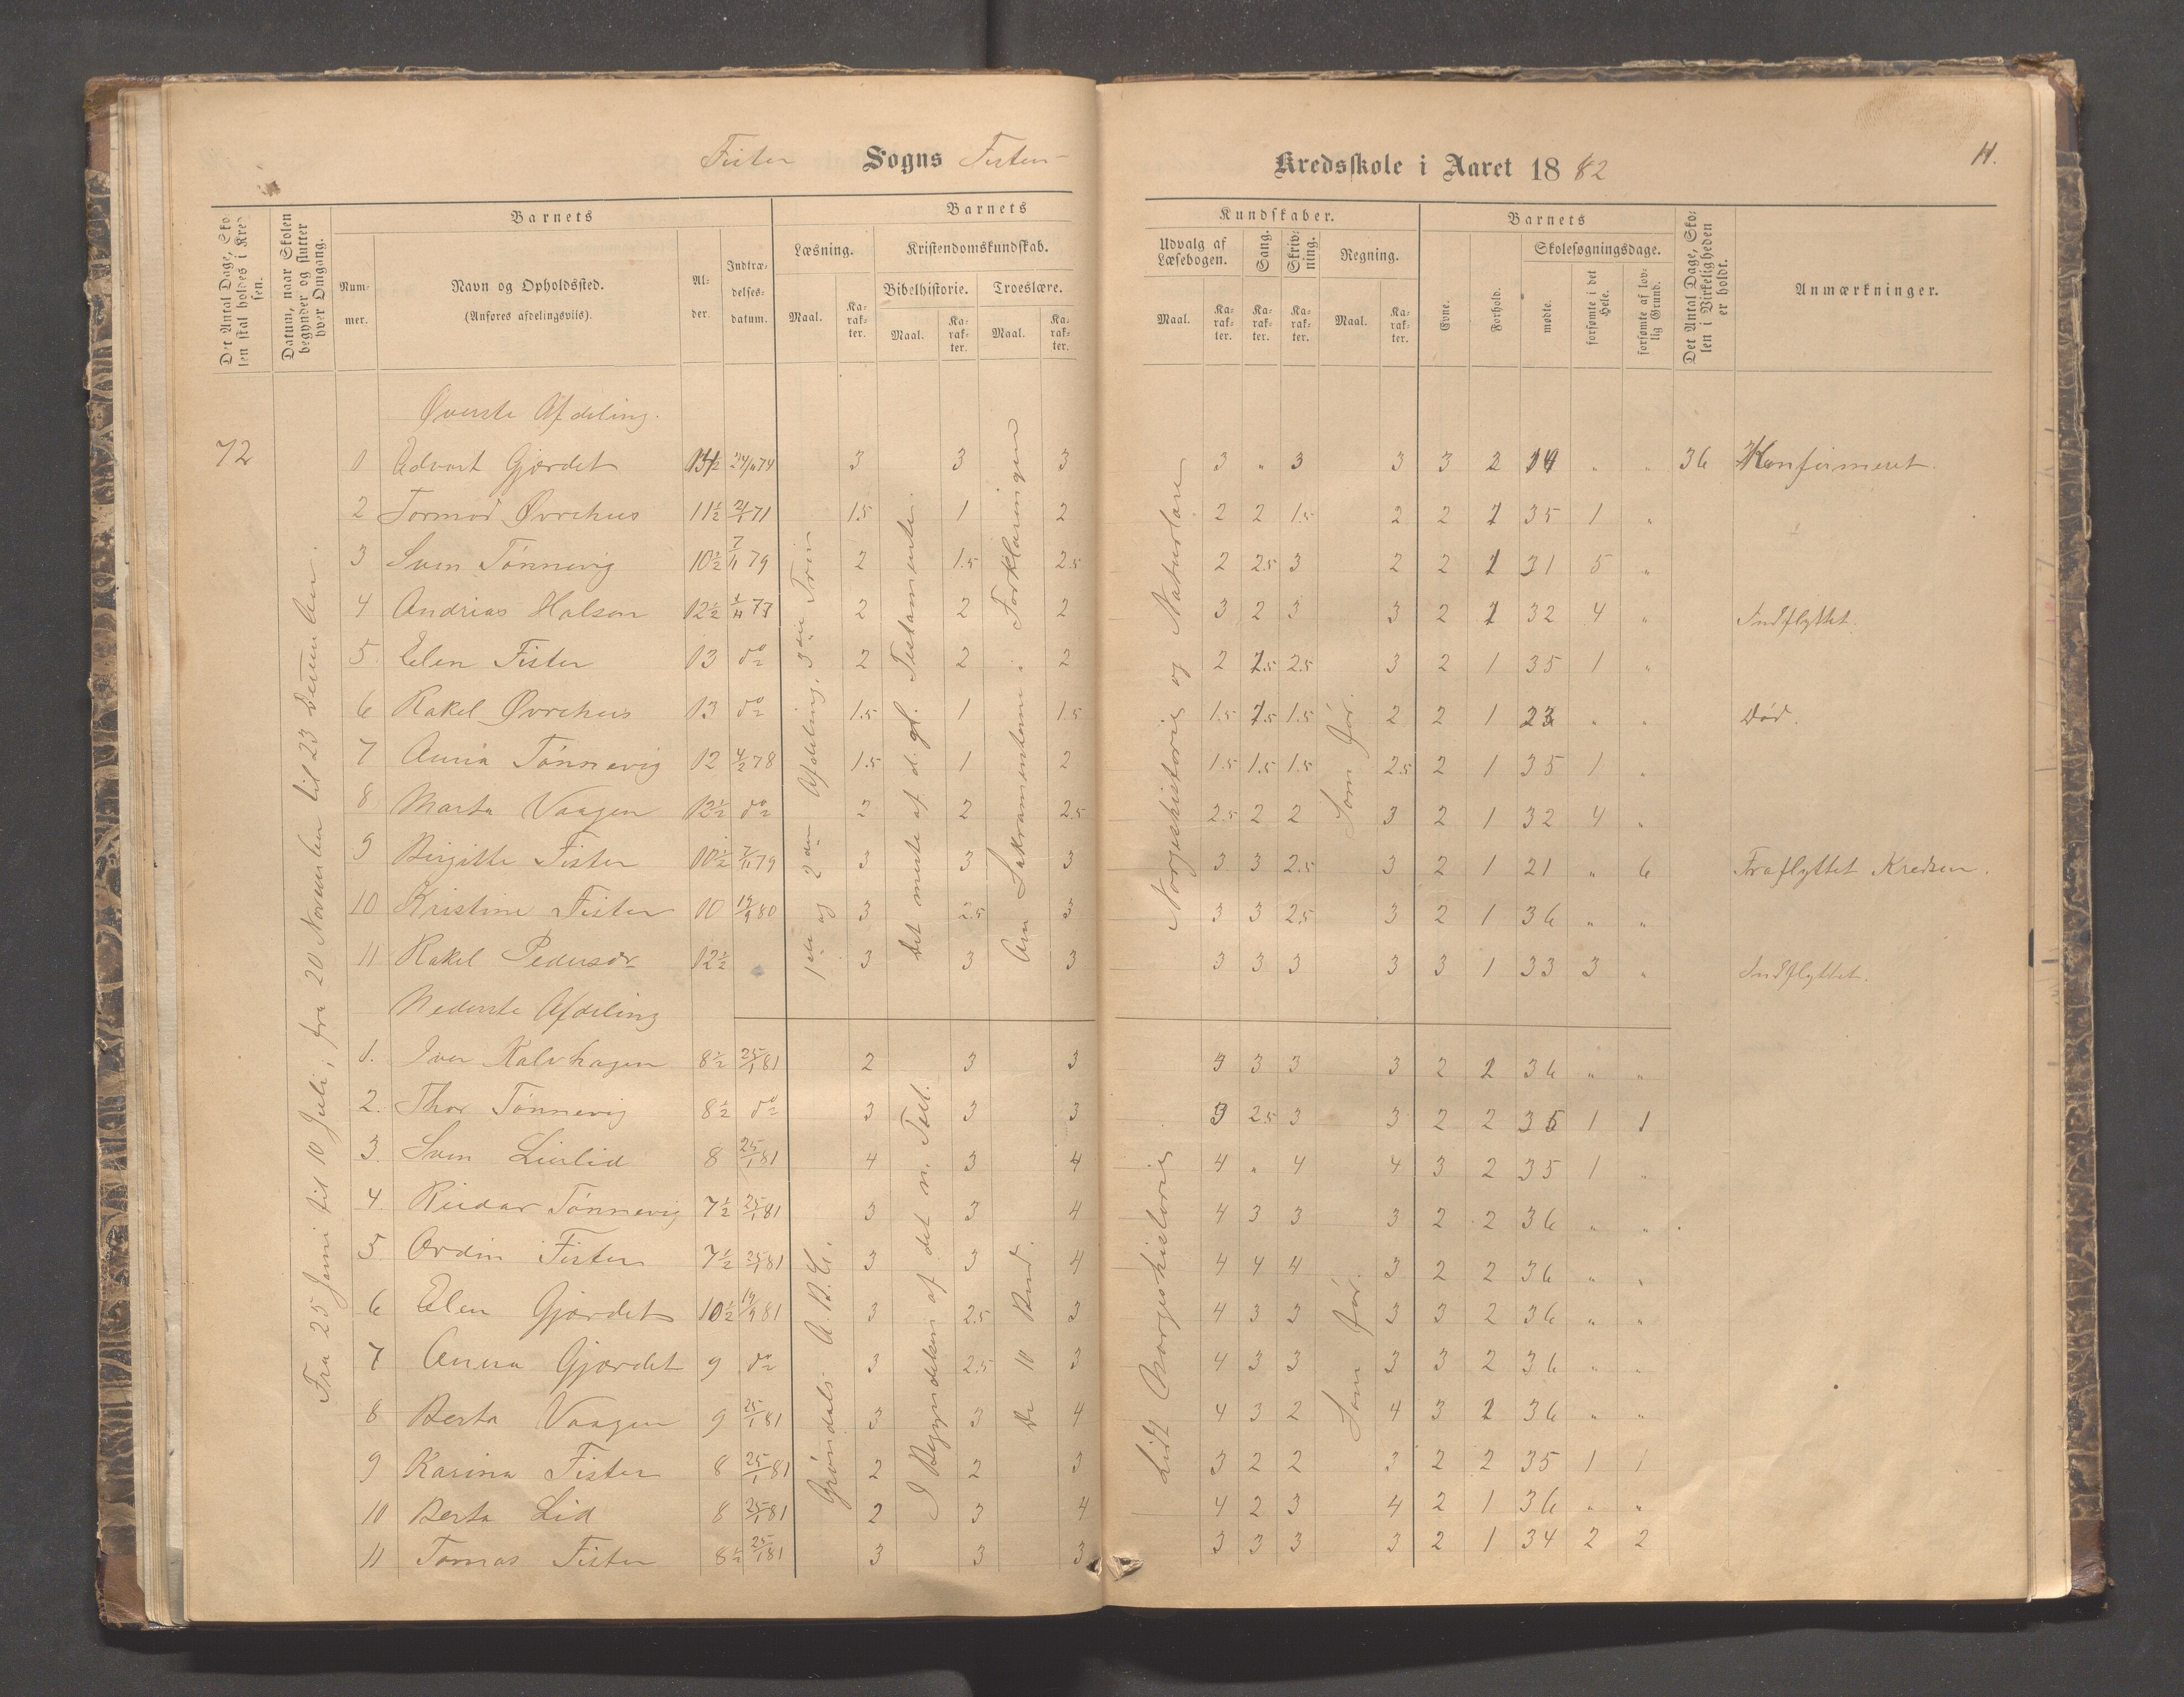 Fister Sogns Fister Kredsskole i Aaret 1882
11.
Det Antal Dage, Skolen skal holdes i Kredsen.
Datum, naar Skolen begynder og slutter hver Omgang.
Barnets
Nummer.
Navn og Opholdssted.
(Anføres afdelingsviis).
Alder.
Indtrædelsesdatum.
Barnets Kundskaber.
Læsning.
Maal.
Karakter.
Kristendomskundskab.
Bibelhistorie.
Maal.
Karakter.
Troeslære.
Maal.
Karakter.
Udvalg af Læsebogen.
Maal.
Karakter.
Sang.
Karakter.
Skrivning.
Karakter.
Regning.
Maal.
Karakter.
Barnets
Evne.
Forhold.
Skolesøgningsdage.
mødte.
forsømte i det Hele.
forsømte af lovlig Grund.
Det Antal Dage, Skolen i Virkeligheden er holdt.
Anmærkninger.
72
Fra 25 Juni til 10 Juli, fra 20 November til 23 December.
1ste og 2den Afdeling, 3die Trin
Det meste af d. gl. Testamente.
Om Sakramenterne i Forklaringen
Norgeshistorie og Naturlære
Som før.
Øverste Afdeling.
1 Edvart Gjerdet 3 3 3 3 „ 3 3 3 2 14 „ „ 36 Konfirmeret.
2 Tormod Øvrehus 11½ 21/1 71 1.5 1 2 2 2 1.5 2 2 1 35 1 „
3 Sven Tønnevig 10½ 7/11 79 2 1.5 2.5 2 2.5 3 2 2 1 31 5 „
4 Andrias Halson 12½ 1/11 77 2 2 2 3 2 3 3 2 1 32 4 „ Indflyttet.
5. Elen Fister 13 do 2 2 2 2 1.5 2.5 3 2 1 35 1 „
6 Rakel Øvrehus 13 do 1.5 1 1.5 1.5 1.5 1.5 2 2 1 23 „ „ Død.
7 Anna Tønnevig 12 4/2 78 1.5 1 2 1.5 1.5 1.5 2.5 2 1 35 1 „
8 Marta Vaagen 12½ do 2 2 2.5 2.5 2 2 3 2 1 32 4 „
9 Birgitte Fister 10½ 7/11 79 3 3 3 3 3 2.5 3 2 1 21 „ 6 Fraflyttet Kredsen.
10 Kristine Fister 10 19/9 80 3 2.5 3 3 3 2.5 3 2 1 36 „ „
11 Rakel Pedersdr 12½ 3 3 3 3 3 3 3 3 1 33 3 „ Indflyttet.
Nederste Afdeling
Grøndals A.B.C.
I Begyndelsen af det n. Test.
De 10 Bud.
Lidt Norgeshistorie
Som før.
1. Iver Kalvhagen 8½ 25/1 81 2 3 3 4 3 3 3 2 2 36 „ „
2. Thor Tønnevig 8½ do 3 3 3 3 2.5 3 3 2 2 35 1 1
3. Sven Lid 8 25/1 81 4 3 4 4 „ 4 4 3 2 35 1 „
4. Reidar Tønnevig 7½ 25/1 81 3 3 4 4 3 3 3 2 2 36 „ „
5. Ordin Fister 7½ 25/1 81 3 3 4 4 4 4 3 2 2 36 „ „
6 Elen Gjerdet 10½ 19/9 81 3 2.5 3 4 3 3 3 3 2 36 „ „
7 Anna Gjerdet 9 do 3 2.5 3 4 3 3 3 3 2 36 „ „
8 Berta Vaagen 9 25/1 81 3 3 4 4 3 2 4 3 2 36 „ „
9 Karina Fister 8 25/1 81 2 2 3 3 2 2 3 2 2 35 1 1
10 Berta Lid 8 25/1 81 2 3 4 4 2 3 4 2 1 36 „ „
11 Tomas Fister 8½ 25/1 81 3 3 3 3 3 3 3 2 1 34 2 2